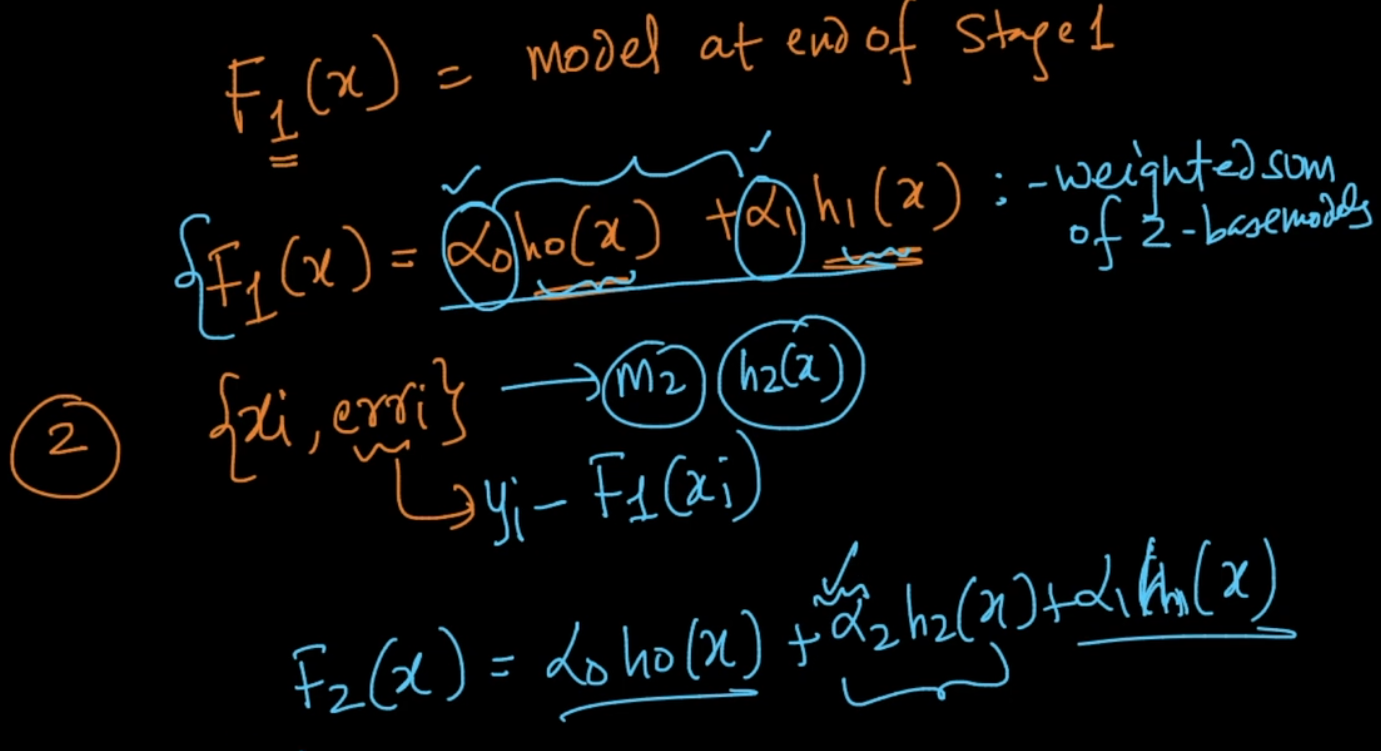 F₁(x) = model at end of Stage 1
F₁(x) = α₀h₀(x) + α₁h₁(x) : - weighted sum
of 2 - basemodels
2 {xi, erri} → M₂ h₂(x)
↳ yi - F₁(xi)
F₂(x) = α₀h₀(x) + α₂h₂(x) + α₁h₁(x)